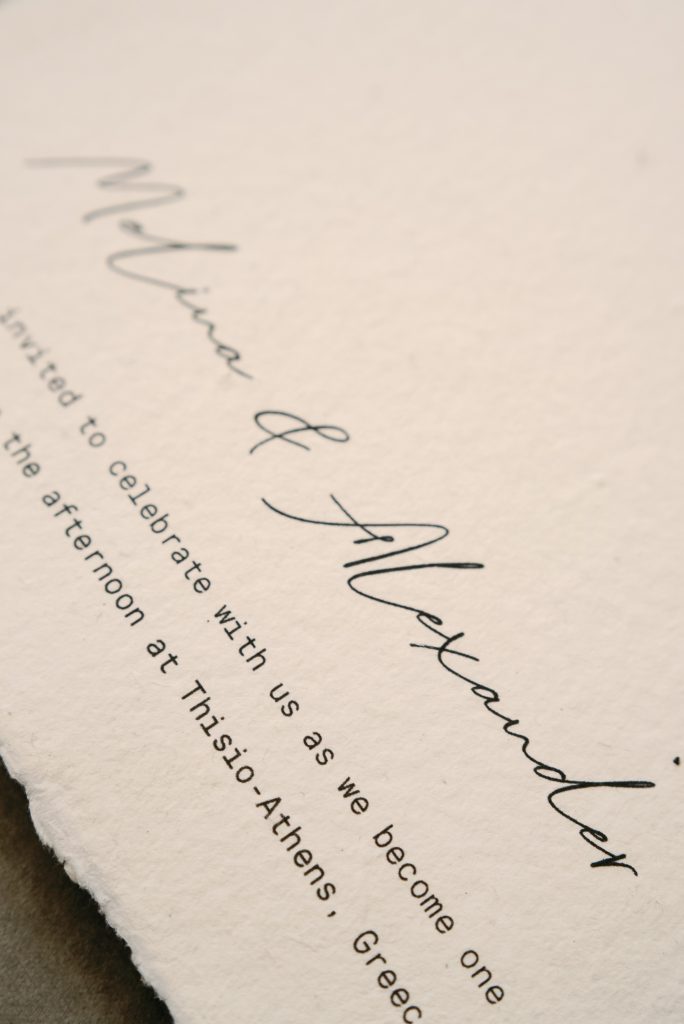 Melina & Alexander
invited to celebrate with us as we become one
the afternoon at Thisio-Athens, Greec